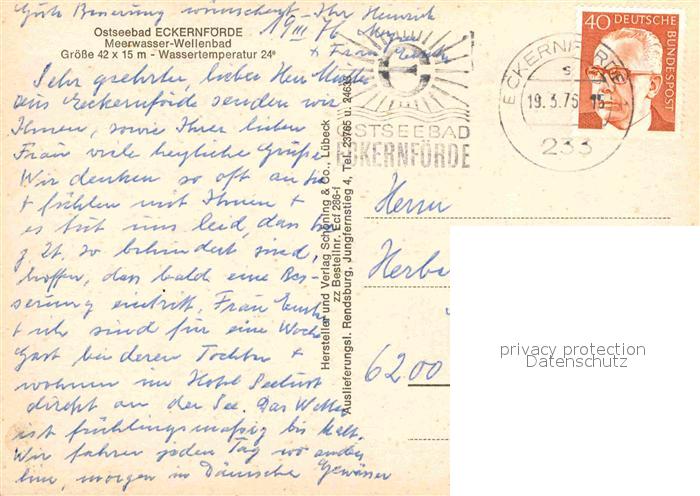 Gute Besserung wünschend Ihr Heinrich
19 III 76
+ Frau
Ostseebad ECKERNFÖRDE
Meerwasser-Wellenbad
Größe 42 x 15 m - Wassertemperatur 24°
Sehr geehrter, lieber Herr
aus Eckernförde senden wir
Ihnen, sowie Ihrer lieben
Frau viele herzliche Grüße
Wir denken so oft an Sie
+ fühlen mit Ihnen +
es tut uns leid, dass Sie
z Zt. so behindert sind,
hoffen, dass bald eine Bes-
serung eintritt. Frau
+ ich sind für eine Woche
Gast bei deren Tochter +
wohnen im Hotel Seelust
direkt an der See. Das Wetter
ist frühlingsmäßig bis kalt.
Wir fahren jeden Tag wo anders
hin, morgen in Dänische Gewässer
Hersteller und Verlag Schöning & Co., Lübeck
zz Bestellnr. Eci 286-f
Auslieferungsl. Rendsburg, Jungfernstieg 4, Tel. 23765 u. 24638
OSTSEEBAD
ECKERNFÖRDE
ECKERNFÖRDE
19.3.76
233
40
DEUTSCHE
BUNDESPOST
Herrn
Herbe
6200
privacy protection
Datenschutz